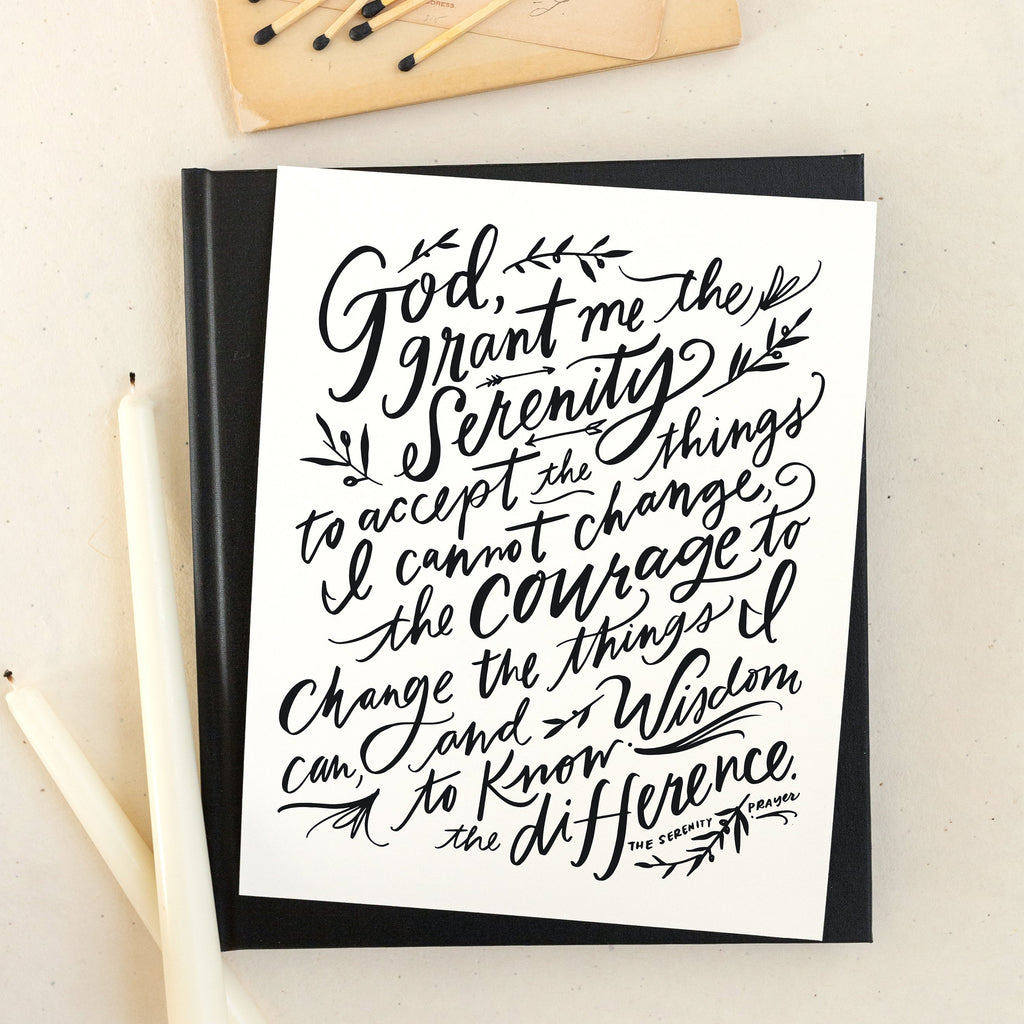 DRESS
God,
grant me the
Serenity
to accept the things
I cannot change,
the courage to
change the things I
can, and Wisdom
to Know
the difference.
THE SERENITY PRAYER